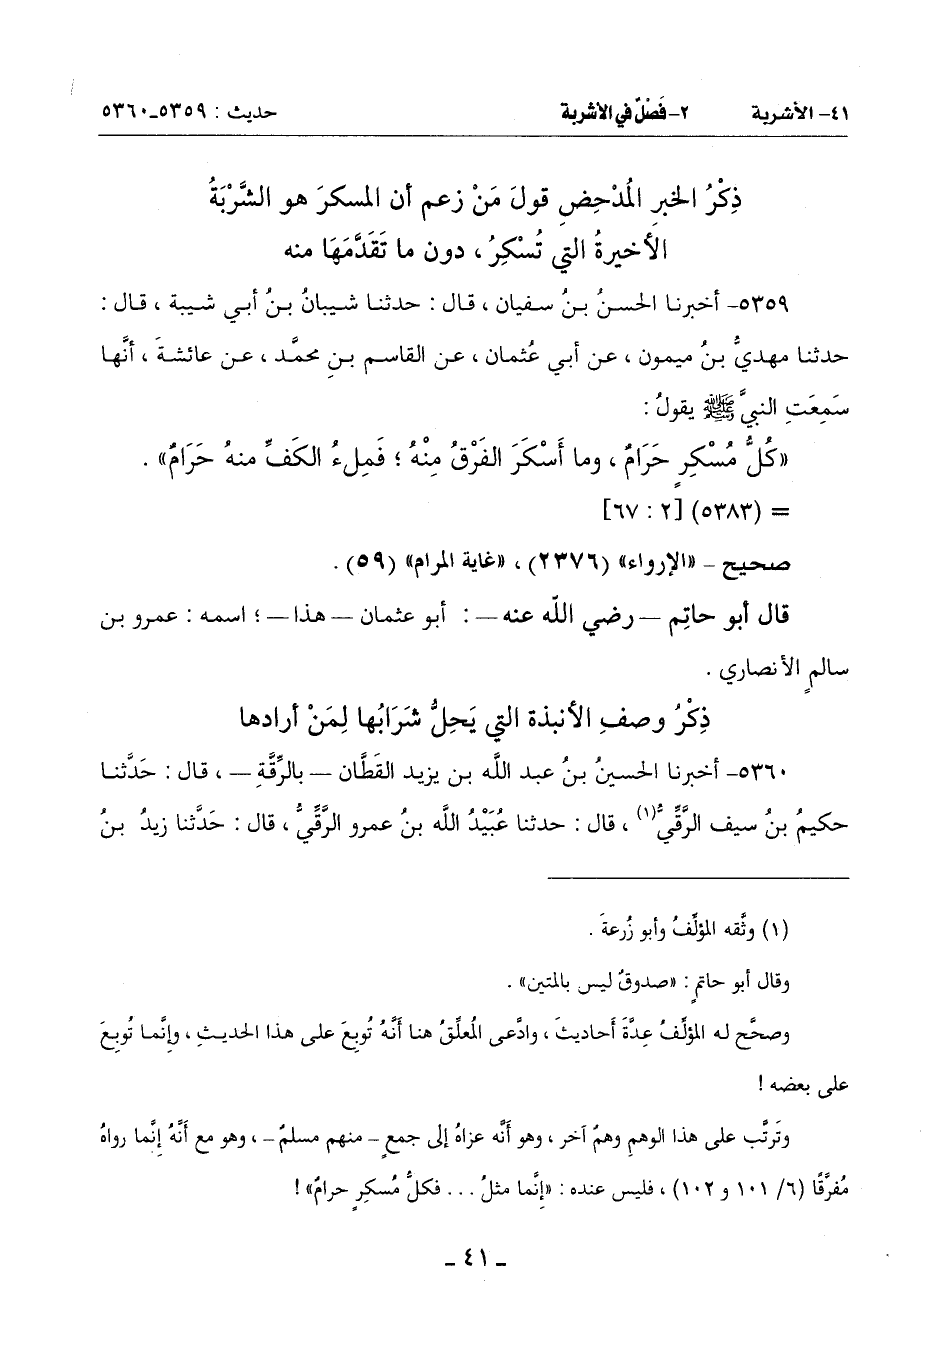 ٤١- الأشربة ٢- فَصْلٌ في الأشربة حديث : ٥٣٥٩-٥٣٦٠
ذِكْرُ الخبرِ المُدْحِضِ قولَ مَنْ زعم أن المسكرَ هو الشَّرْبَةُ
الأخيرةُ التي تُسْكِرُ ، دون ما تَقَدَّمَهَا منه
٥٣٥٩- أخبرنا الحسنُ بنُ سفيان ، قال : حدثنا شيبانُ بنُ أبي شيبة ، قال :
حدثنا مهديُّ بنُ ميمون ، عن أبي عُثمان ، عن القاسم بنِ محمَّد ، عن عائشةَ ، أنَّها
سَمِعَتِ النبيَّ ﷺ يقولُ :
«كُلُّ مُسْكِرٍ حَرَامٌ ، وما أَسْكَرَ الفَرْقُ مِنْهُ ؛ فَمِلءُ الكَفِّ منهُ حَرَامٌ» .
= (٥٣٨٣) [٢ : ٦٧]
صحيح - «الإرواء» (٢٣٧٦) ، «غاية المرام» (٥٩) .
قال أبو حاتِم — رضي اللَّه عنه — : أبو عثمان — هذا — ؛ اسمه : عمرو بن
سالمٍ الأنصاري .
ذِكْرُ وصفِ الأنبذة التي يَحِلُّ شَرَابُها لِمَنْ أرادها
٥٣٦٠- أخبرنا الحسينُ بنُ عبد اللَّه بن يزيد القَطَّان — بالرِّقَّةِ — ، قال : حَدَّثنا
حكيمُ بنُ سيف الرَّقِّيُّ(١) ، قال : حدثنا عُبَيْدُ اللَّه بنُ عمرو الرَّقِّيُّ ، قال : حَدَّثنا زيدُ بنُ
(١) وثَّقه المؤلِّفُ وأبو زُرعةَ .
وقال أبو حاتمٍ : «صدوقٌ ليس بالمتين» .
وصحَّح له المؤلِّفُ عِدَّةَ أحاديثَ ، وادَّعى المُعلِّقُ هنا أنَّهُ تُوبِعَ على هذا الحديثِ ، وإنَّما تُوبِعَ
على بعضه !
وتَرتَّب على هذا الوهمِ وهمٌ آخر ، وهو أنَّه عزاهُ إلى جمعٍ - منهم مسلمٌ - ، وهو مع أنَّهُ إنَّما رواهُ
مُفرَّقًا (٦/ ١٠١ و ١٠٢) ، فليس عنده : «إنَّما مثلُ . . . فكلُّ مُسكرٍ حرامٌ» !
- ٤١ -